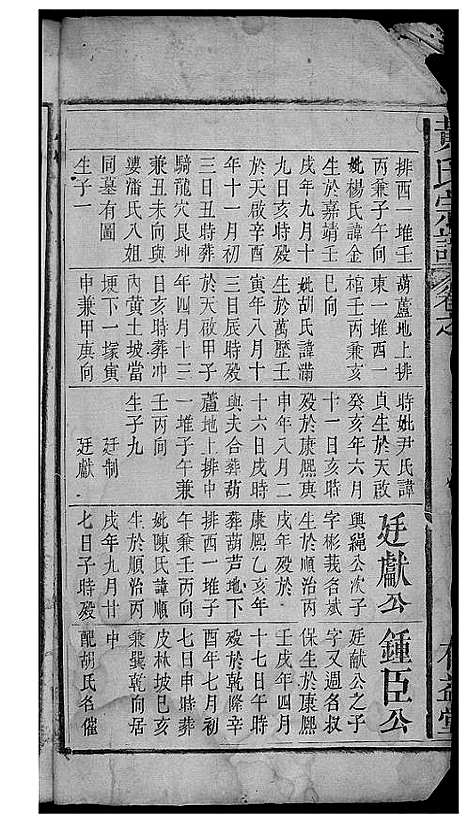 黃氏宗譜
卷之
益堂
排西一堆壬
丙兼子午向
妣楊氏諱金
生於嘉靖壬
戌年九月十
九日亥時殁
於天啟辛酉
年十一月初
三日丑時葬
騎龍穴艮坤
兼丑未向與
婆潘氏八姐
同墓有圖
生子一
葫蘆地上排
東一堆西一
棺壬丙兼亥
巳向
妣胡氏諱滿
生於萬歷壬
寅年八月十
三日辰時殁
於天啟甲子
年四月十三
日亥時葬冲
內黃土坡當
埂下一塚寅
申兼甲庚向
時妣尹氏諱
貞生於天啟
癸亥年六月
十一日亥時
殁於康熙庚
申年八月二
十六日戌時
與夫合葬葫
蘆地上排中
一堆子午兼
壬丙向
生子九
廷制
廷獻
廷獻公
興繩公次子
字彬莪名斌
生於順治丙
戌年殁於
康熙乙亥年
葬葫蘆地下
排西一堆子
午兼壬丙向
妣陳氏諱順
生於順治丙
戌年九月廿
七日子時殁
鍾臣公
廷獻公之子
字又週名叔
保生於康熙
壬戌年四月
十七日午時
殁於乾隆辛
酉年七月初
七日申時葬
皮林坡巳亥
兼巽乾向居
申
配胡氏名催